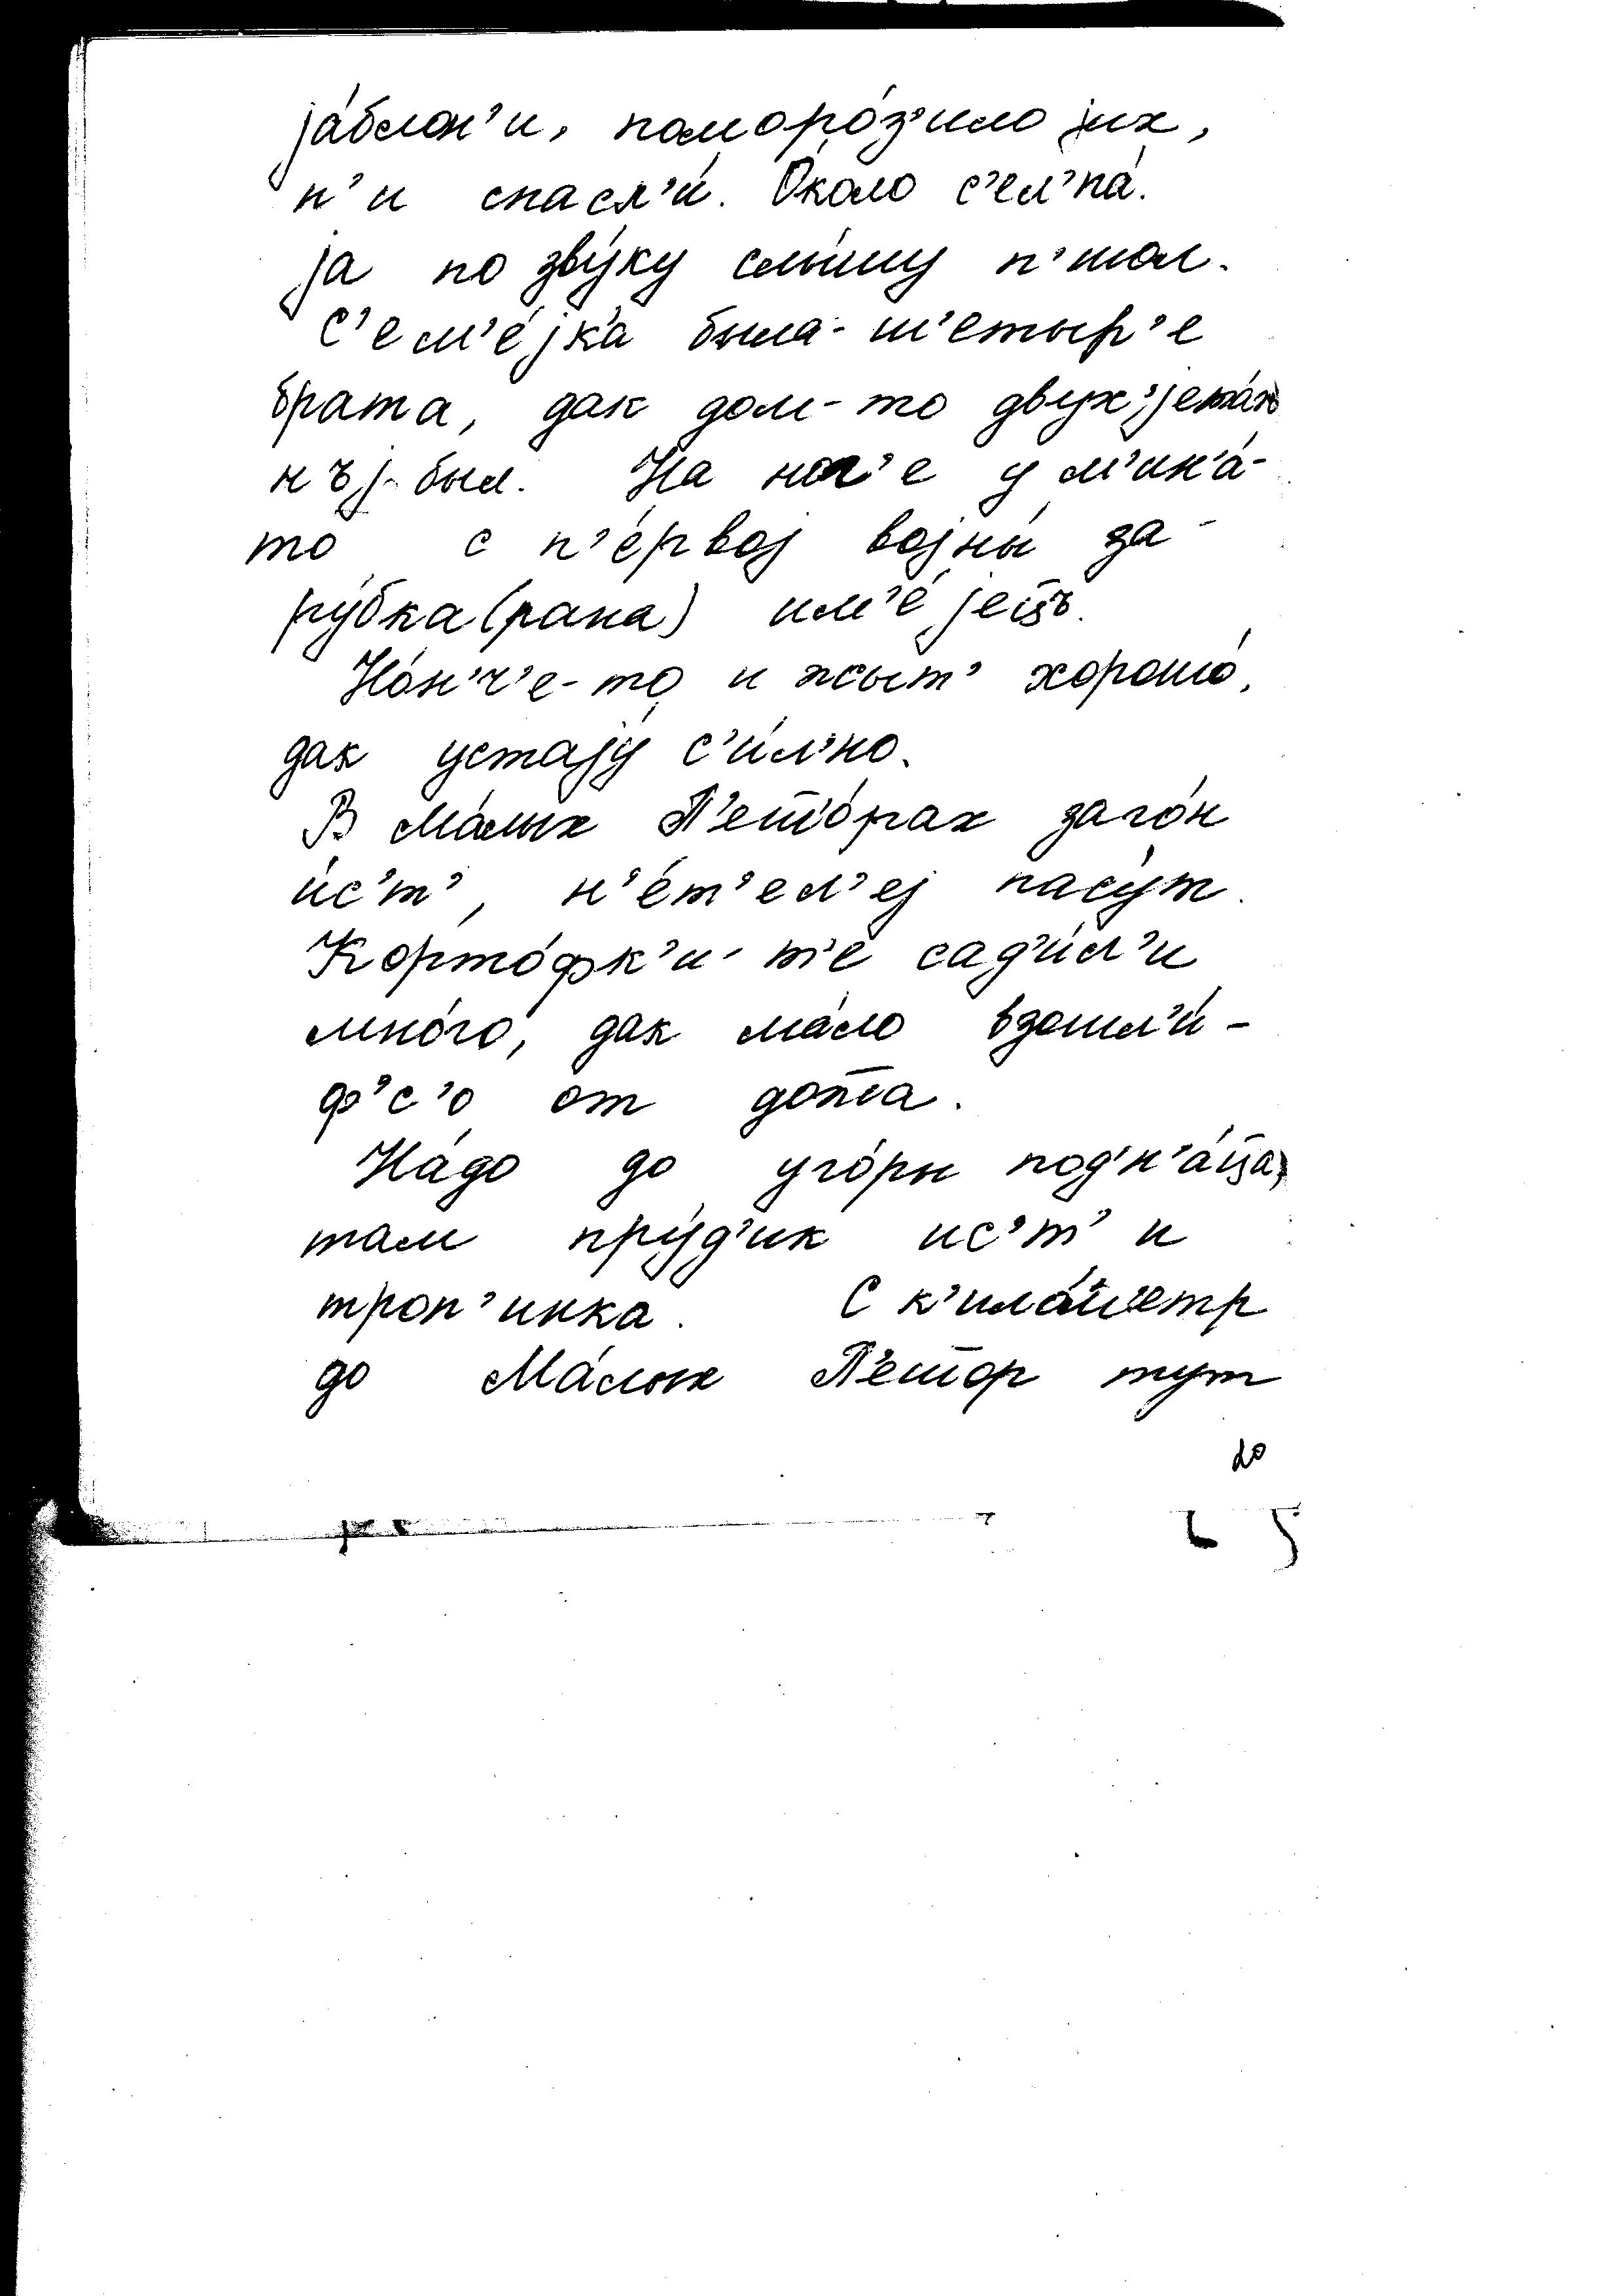 jа́блон'и, поморо́з'ило jих,
н'и спасл'и́. О́коло с'ел'па́.
jа по зву́ку слы́шу п'шол.
С'ем'е́jк'а была - ш'етыр'е
брата, дак дом-то двухjета́ж
нъj был. На ног'е у м'ин'а́-
то с п'е́рвоj воjны́ за-
ру́бка (рана) им'е́jетцъ.
Но́н'ч'е-то и жыт' хорошо́,
дак устаjу́ с'и́л'но.
В Ма́лых П'ешо́рах заго́н
и́с'т', н'е́т'ел'еj пасу́т.
Корто́фк'и-т'е сад'и́л'и
мно́го, дак ма́ло взошл'и́ -
ф'с'о от дожа.
На́до до уго́ры под'н'а́тца,
там пру́д'ик ис'т' и
троп'инка. С к'ила́м'етр
до Ма́лых П'ешор тут
20